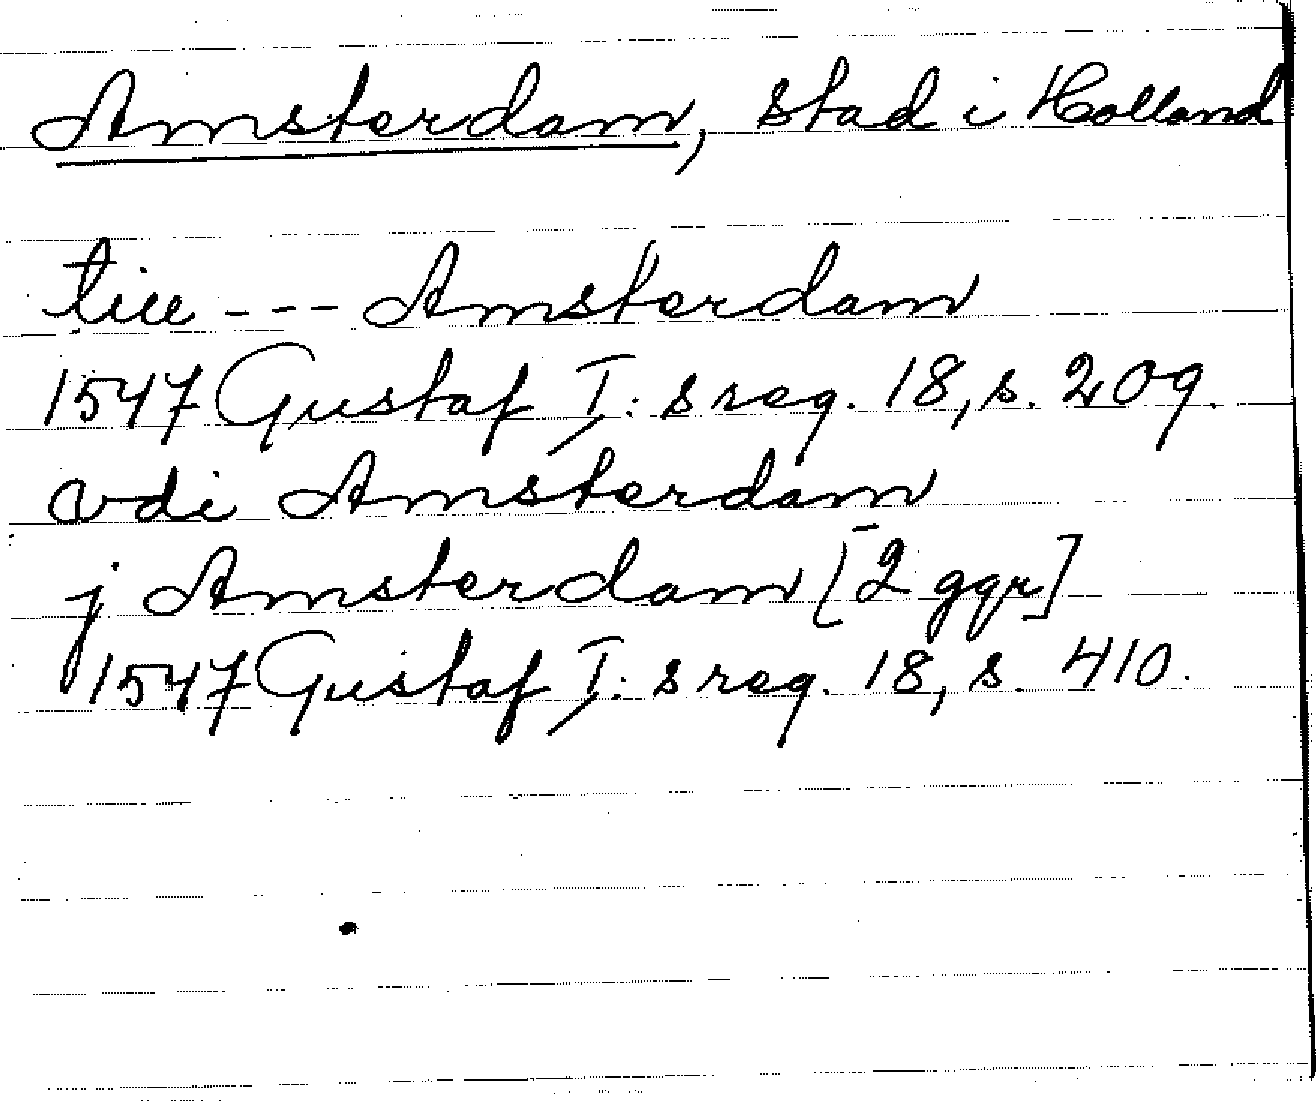 Amsterdam, stad i Holland
till --- Amsterdam
1547 Gustaf I:s reg. 18, s. 209.
vdi Amsterdam
j Amsterdam [2 ggr]
1547 Gustaf I:s reg. 18, s. 410.